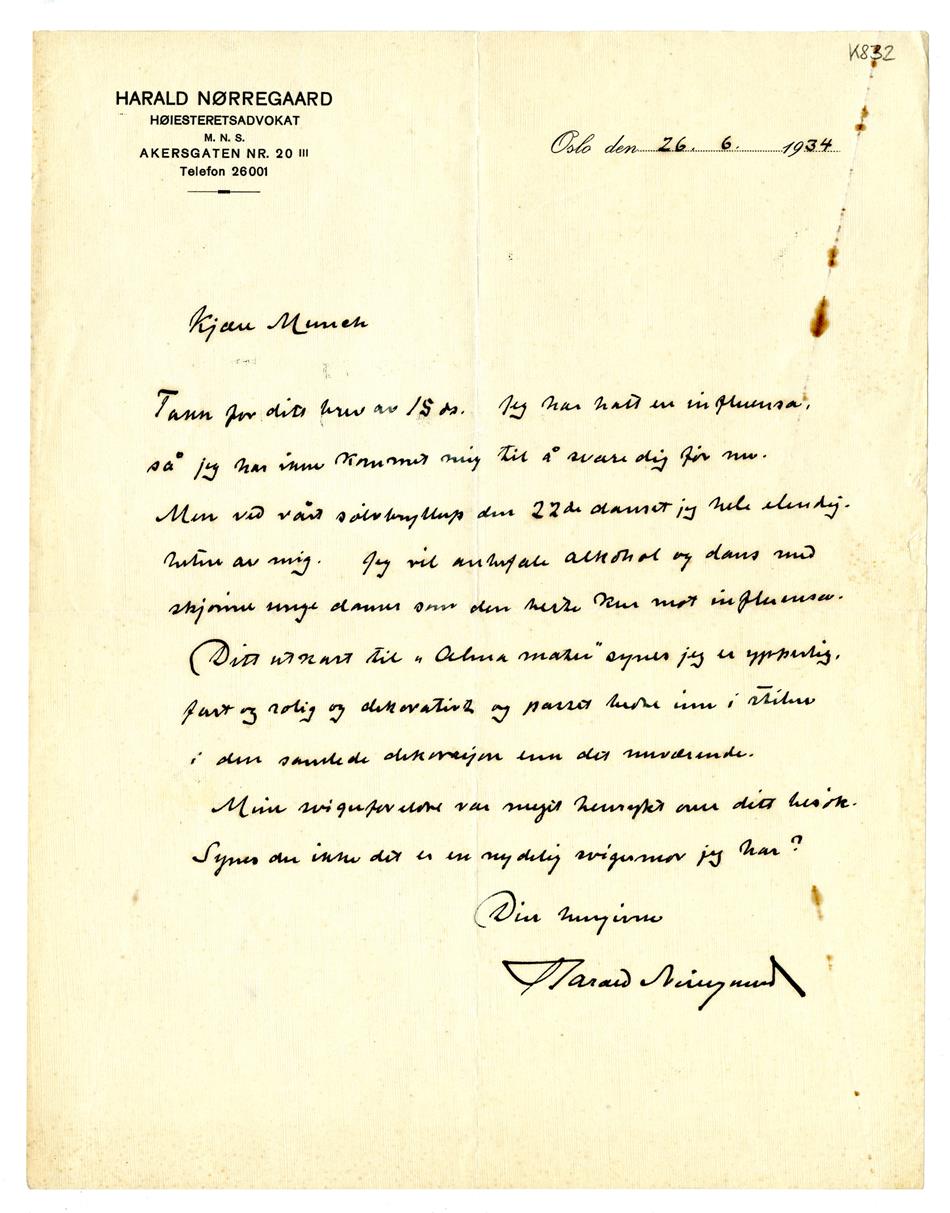 K832
HARALD NØRREGAARD
HØIESTERETSADVOKAT
M. N. S.
AKERSGATEN NR. 20 III
Telefon 26001
Oslo den 26. 6. 1934
Kjære Munch
Takk for ditt brev av 15 ds. Jeg har hatt en influensa,
så jeg har ikke kommet mig til å svare dig før nu.
Men ved vårt sølvbryllup den 22de danset jeg hele elendig-
heten av mig. Jeg vil anbefale alkohol og dans med
skjønne unge damer som den beste kur mot influensa.
Ditt utkast til "Alma mater" synes jeg er ypperlig,
fast og rolig og dekorativt og passet bedre inn i stilen
i den samlede dekorasjon enn det nuværende.
Mine svigerforeldre var meget henrykt over ditt besøk.
Synes du ikke det er en nydelig svigermor jeg har?
Din hengivne
Harald Nørregaard